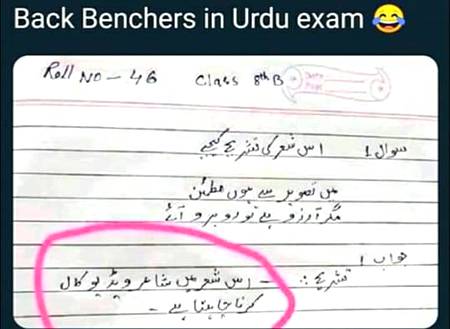 Back Benchers in Urdu exam 😂
Roll No - 46 Class 8th B
Date
Page
سوال 1 اس شعر کی تشریح کیجیے
میں تصویر سے ہوں مطمئن
مگر آرزو ہے تو روبرو آئے
جواب 1
تشریح :- اس شعر میں شاعر ویڈیو کال
کرنا چاہتا ہے -